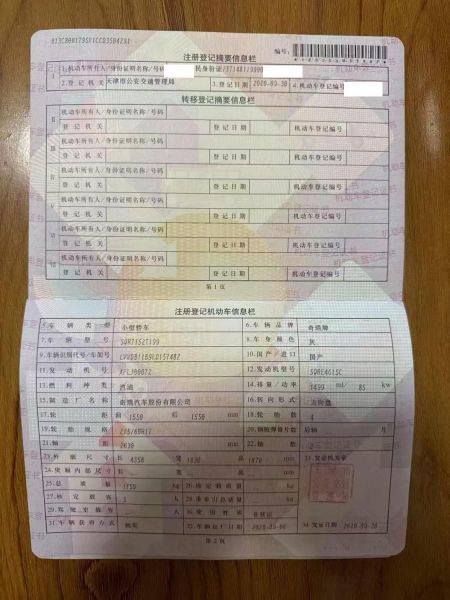 注册登记摘要信息栏
编号:
1.机动车所有人/身份证明名称/号码
2.登记机关 天津市公安交通管理局 3.登记日期 2020-09-30 4.机动车登记编号
转移登记摘要信息栏
机动车所有人/身份证明名称/号码
登记机关 登记日期 机动车登记编号
机动车所有人/身份证明名称/号码
登记机关 登记日期 机动车登记编号
机动车所有人/身份证明名称/号码
登记机关 登记日期 机动车登记编号
机动车所有人/身份证明名称/号码
登记机关 登记日期 机动车登记编号
机动车所有人/身份证明名称/号码
登记机关 登记日期 机动车登记编号
第1页
注册登记机动车信息栏
5.车辆类型 小型轿车 6.车辆品牌 奇瑞牌
7.车辆型号 8.车身颜色 灰
9.车辆识别代号/车架号 10.国产/进口 国产
11.发动机号 12.发动机型号 SQRE4G15C
13.燃料种类 汽油 14.排量/功率 1499 ml/ 85 kw
15.制造厂名称 奇瑞汽车股份有限公司 16.转向形式 方向盘
17.轮距 前 1550 后 1550 mm 18.轮胎数 4
19.轮胎规格 20.钢板弹簧片数 后轴 片
21.轴距 2630 mm 22.轴数 2
23.外廓尺寸 长 4358 宽 1830 高 1670 mm 33.发证机关章
24.货厢内部尺寸 长 宽 高 mm
25.总质量 kg 26.核定载质量 kg
27.核定载客 人 28.准牵引总质量 kg
29.驾驶室载客 人 30.使用性质 非营运
31.车辆获得方式 购买 32.车辆出厂日期 34.发证日期
第2页